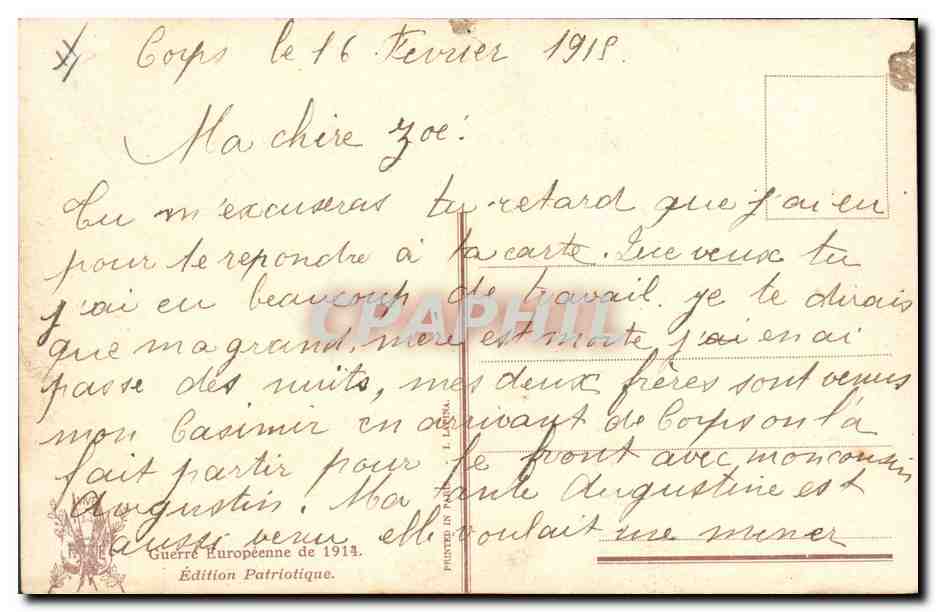 Corps le 16 Fevrier 1915.
Ma chire Zoé!
Tu m'excuseras tu retard que j'ai eu
pour te repondre à ta carte. Que veux tu
j'ai eu beaucoup de travail. je te dirais
que ma grand, mère est morte, j'ai en ai
passe des nuits, mes deux frères sont venus
mon Casimir en arrivant de Corps on l'a
fait partir pour le front avec mon cousin
Augustin. Ma tante Augustine est
aussi venu elle voulait me mener
CPAPHIL
PRINTED IN PARIS
L. LAPINA.
VIVE
Guerre Européenne de 1914.
Édition Patriotique.